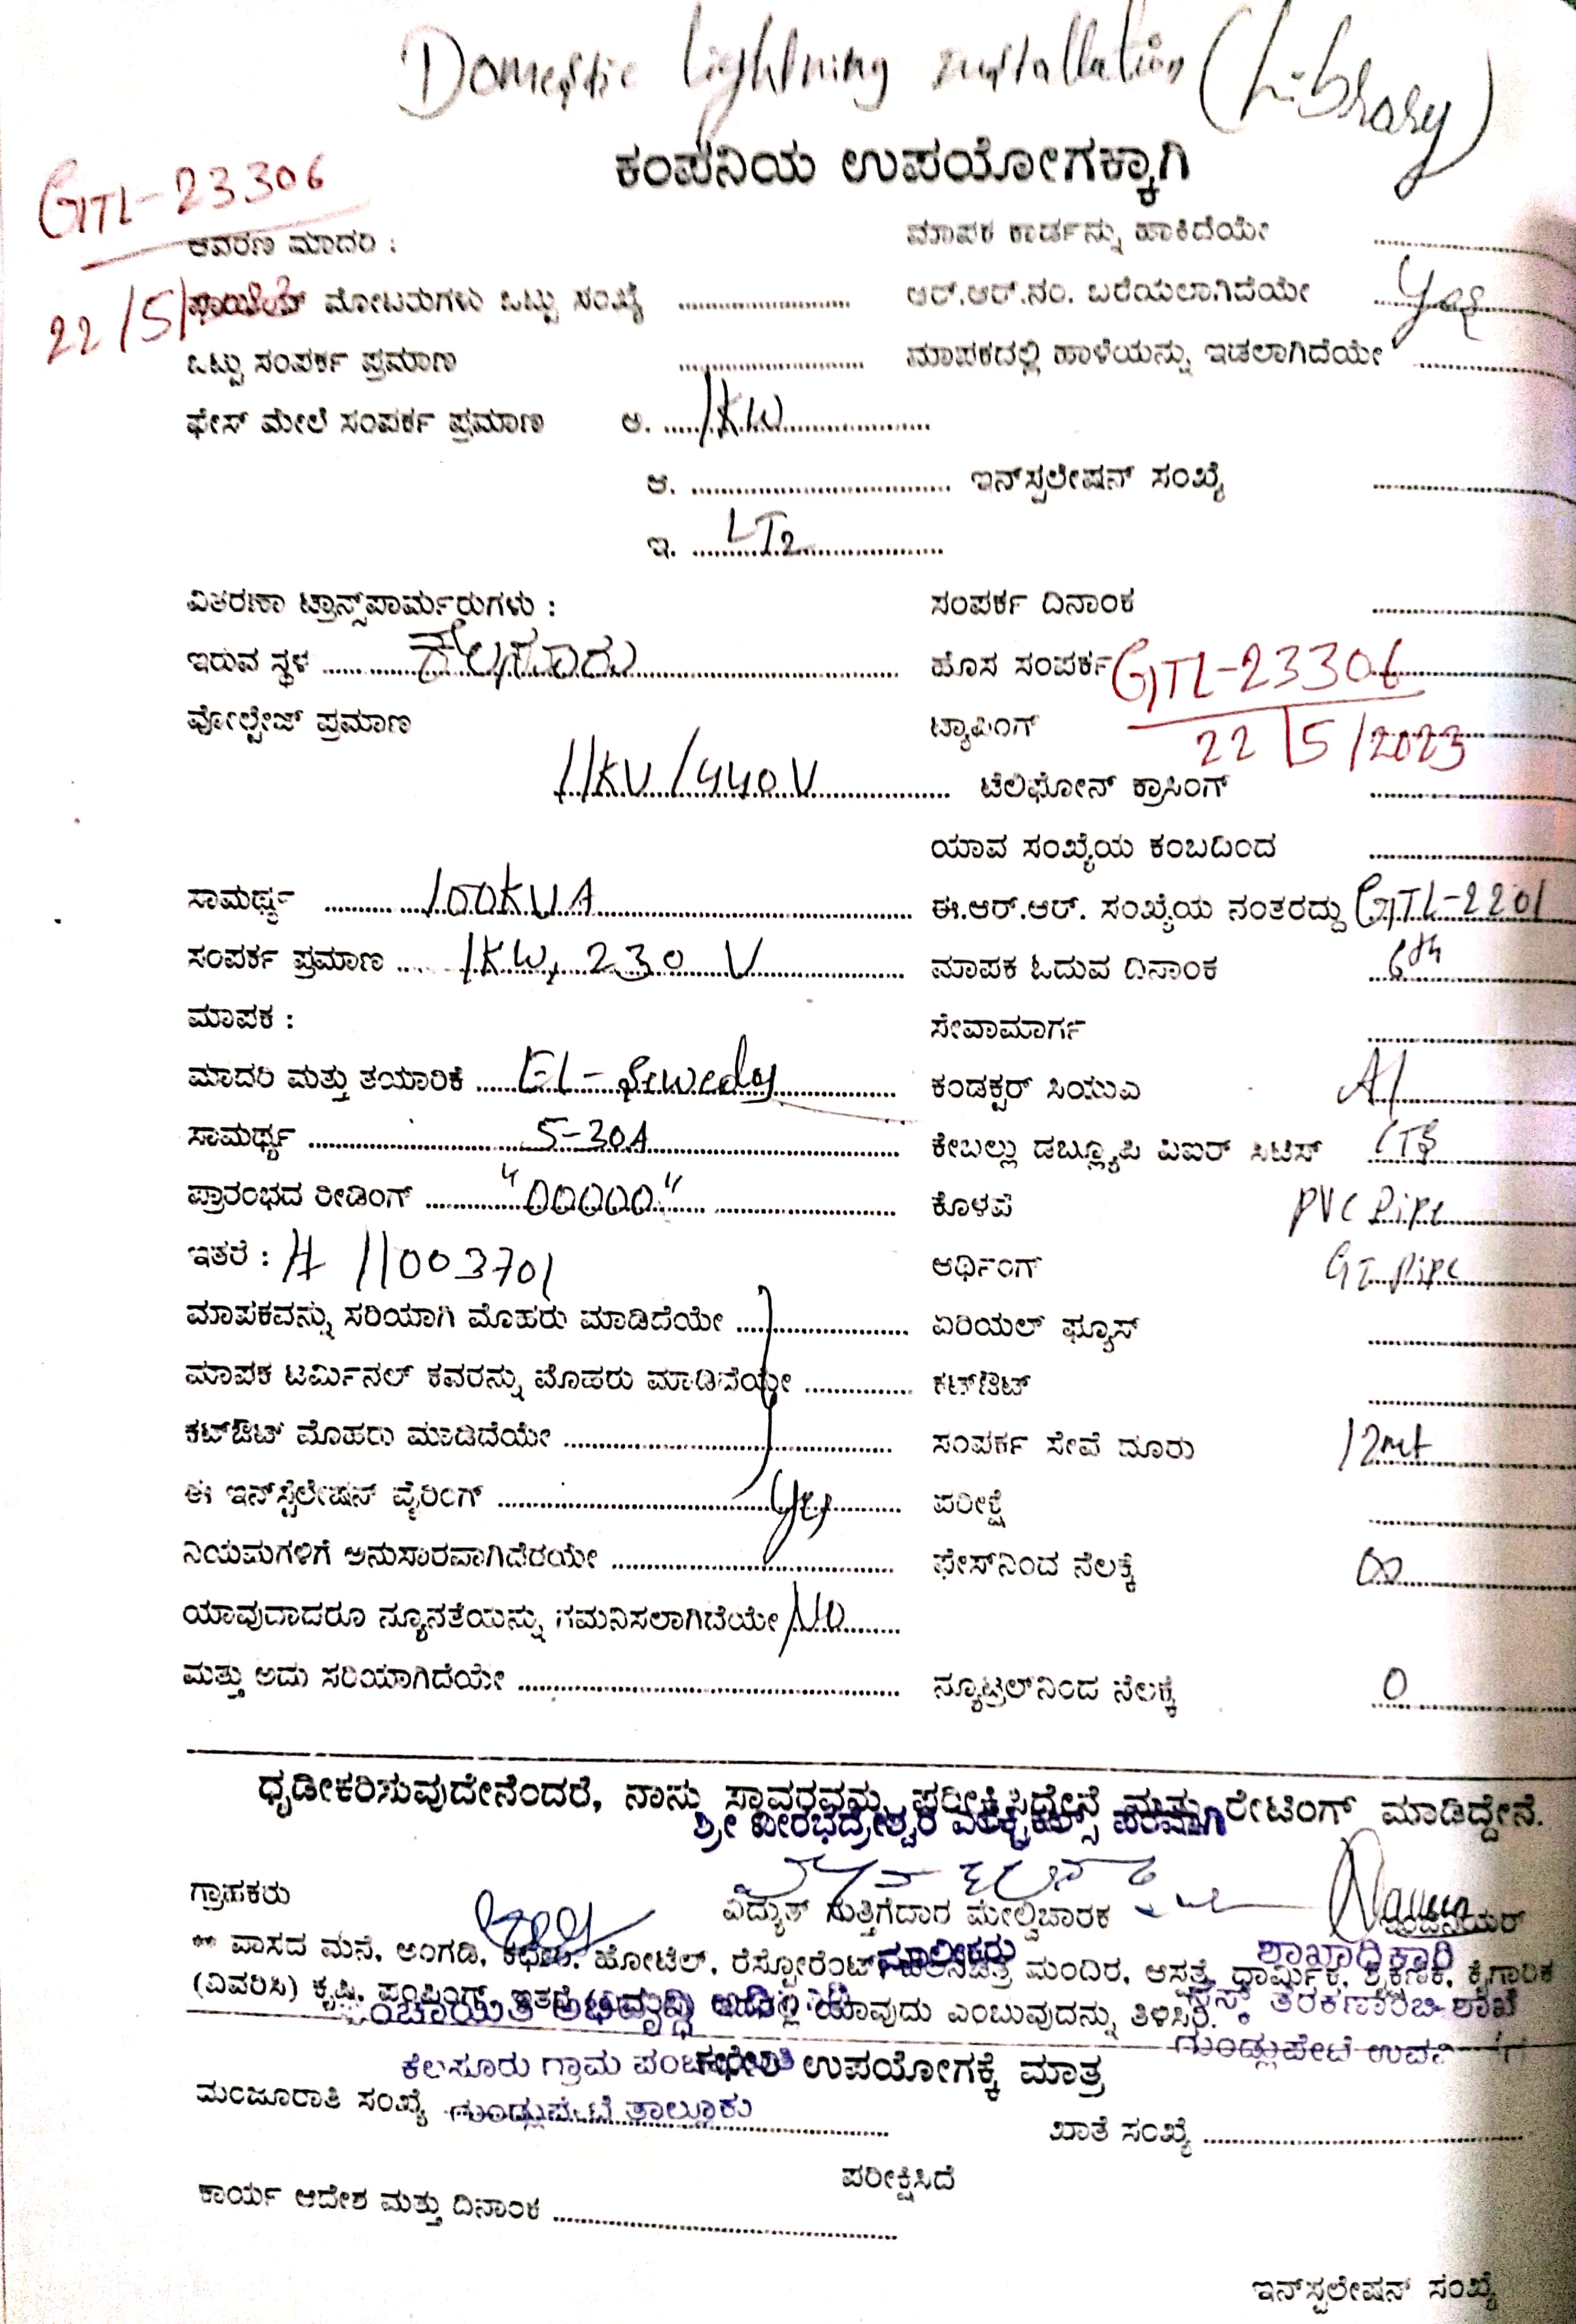 Domestic Lightning installation (Library)
ಕಂಪನಿಯ ಉಪಯೋಗಕ್ಕಾಗಿ
GTL-23306
22/5/
ಆವರಣ ಮಾದರಿ : ಮಾಪಕ ಕಾರ್ಡನ್ನು ಹಾಕಿದೆಯೇ
ಮೋಟರುಗಳು ಒಟ್ಟು ಸಂಖ್ಯೆ ಆರ್.ಆರ್.ನಂ. ಬರೆಯಲಾಗಿದೆಯೇ Yes
ಒಟ್ಟು ಸಂಪರ್ಕ ಪ್ರಮಾಣ ಮಾಪಕದಲ್ಲಿ ಹಾಳೆಯನ್ನು ಇಡಲಾಗಿದೆಯೇ
ಫೇಸ್ ಮೇಲೆ ಸಂಪರ್ಕ ಪ್ರಮಾಣ ಅ. 1KW
ಆ. ಇನ್‌ಸ್ಟಲೇಷನ್ ಸಂಖ್ಯೆ
ಇ. LT2
ವಿತರಣಾ ಟ್ರಾನ್ಸ್‌ಪಾರ್ಮರುಗಳು : ಸಂಪರ್ಕ ದಿನಾಂಕ
ಇರುವ ಸ್ಥಳ ಕೆಲಸೂರು ಹೊಸ ಸಂಪರ್ಕ GTL-23306
ವೋಲ್ಟೇಜ್ ಪ್ರಮಾಣ ಟ್ಯಾಪಿಂಗ್ 22/5/2023
11KV/440V ಟೆಲಿಫೋನ್ ಕ್ರಾಸಿಂಗ್
ಯಾವ ಸಂಖ್ಯೆಯ ಕಂಬದಿಂದ
ಸಾಮರ್ಥ್ಯ 100KVA ಈ.ಆರ್.ಆರ್. ಸಂಖ್ಯೆಯ ನಂತರದ್ದು GTL-2201
ಸಂಪರ್ಕ ಪ್ರಮಾಣ 1KW, 230 V ಮಾಪಕ ಓದುವ ದಿನಾಂಕ 6th
ಮಾಪಕ : ಸೇವಾಮಾರ್ಗ
ಮಾದರಿ ಮತ್ತು ತಯಾರಿಕೆ EL-Sewedy ಕಂಡಕ್ಟರ್ ಸಿಯುಎ Al
ಸಾಮರ್ಥ್ಯ 5-30A ಕೇಬಲ್ಲು ಡಬ್ಲ್ಯೂಪಿ ವಿಐರ್ ಸಿಟಿಸ್
ಪ್ರಾರಂಭದ ರೀಡಿಂಗ್ "00000" ಕೊಳವೆ PVC Pipe
ಇತರೆ : # 11003701 ಅರ್ಥಿಂಗ್ GI Pipe
ಮಾಪಕವನ್ನು ಸರಿಯಾಗಿ ಮೊಹರು ಮಾಡಿದೆಯೇ ಏರಿಯಲ್ ಫ್ಯೂಸ್
ಮಾಪಕ ಟರ್ಮಿನಲ್ ಕವರನ್ನು ಮೊಹರು ಮಾಡಿದೆಯೇ ಕಟ್‌ಔಟ್
ಕಟ್‌ಔಟ್ ಮೊಹರು ಮಾಡಿದೆಯೇ ಸಂಪರ್ಕ ಸೇವೆ ದೂರು 12mt
ಈ ಇನ್‌ಸ್ಟೆಲೇಷನ್ ವೈರಿಂಗ್ Yes ಪರೀಕ್ಷೆ
ನಿಯಮಗಳಿಗೆ ಅನುಸಾರವಾಗಿದೆರಯೇ ಫೇಸ್‌ನಿಂದ ನೆಲಕ್ಕೆ ∞
ಯಾವುದಾದರೂ ನ್ಯೂನತೆಯನ್ನು ಗಮನಿಸಲಾಗಿದೆಯೇ NO
ಮತ್ತು ಅದು ಸರಿಯಾಗಿದೆಯೇ ನ್ಯೂಟ್ರಲ್‌ನಿಂದ ನೆಲಕ್ಕೆ 0
ಧೃಡೀಕರಿಸುವುದೇನೆಂದರೆ, ನಾನು ಸ್ಥಾವರವನ್ನು ಪರೀಕ್ಷಿಸಿದ್ದೇನೆ ಮತ್ತು ರೇಟಿಂಗ್ ಮಾಡಿದ್ದೇನೆ.
ಶ್ರೀ ವೀರಭದ್ರೇಶ್ವರ ಎಲೆಕ್ಟ್ರಿಕಲ್ಸ್ ಪರವಾಗಿ
ಗ್ರಾಹಕರು ವಿದ್ಯುತ್ ಗುತ್ತಿಗೆದಾರ ಮೇಲ್ವಿಚಾರಕ ಇಂಜಿನಿಯರ್
ಮಾಲೀಕರು ಶಾಖಾಧಿಕಾರಿ
** ವಾಸದ ಮನೆ, ಅಂಗಡಿ, ಕಛೇರಿ, ಹೋಟೆಲ್, ರೆಸ್ಟೋರೆಂಟ್, ಚಲನಚಿತ್ರ ಮಂದಿರ, ಆಸ್ಪತ್ರೆ, ಧಾರ್ಮಿಕ, ಶೈಕ್ಷಣಿಕ, ಕೈಗಾರಿಕ
(ವಿವರಿಸಿ) ಕೃಷಿ, ಪಂಪಿಂಗ್, ಇತರೆ ಯಾವುದು ಎಂಬುವುದನ್ನು ತಿಳಿಸಿರಿ.
ಪಂಚಾಯಿತಿ ಅಭಿವೃದ್ಧಿ ಅಧಿಕಾರಿ
ತೆರಕಣಾಂಬಿ ಶಾಖೆ
ಗುಂಡ್ಲುಪೇಟೆ
ಕೆಲಸೂರು ಗ್ರಾಮ ಪಂಚಾಯಿತಿ
ಕಛೇರಿ ಉಪಯೋಗಕ್ಕೆ ಮಾತ್ರ
ಗುಂಡ್ಲುಪೇಟೆ ತಾಲ್ಲೂಕು
ಮಂಜೂರಾತಿ ಸಂಖ್ಯೆ ಖಾತೆ ಸಂಖ್ಯೆ
ಪರೀಕ್ಷಿಸಿದೆ
ಕಾರ್ಯ ಆದೇಶ ಮತ್ತು ದಿನಾಂಕ
ಇನ್‌ಸ್ಟಲೇಷನ್ ಸಂಖ್ಯೆ